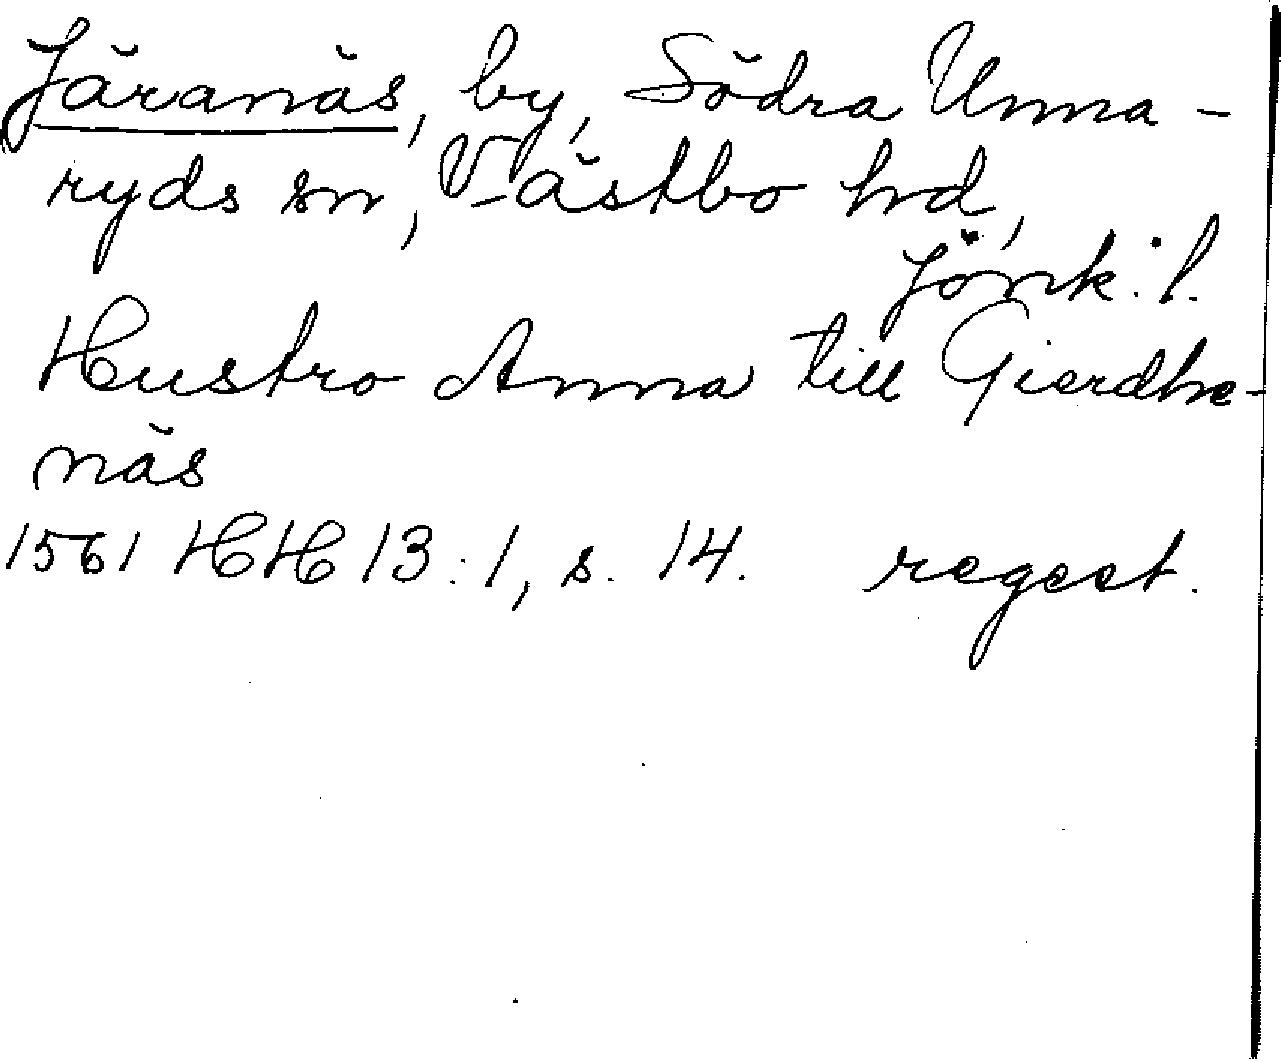 Järanäs, by, Södra Unna-
ryds sn, Västbo hd,
Jönk. l.
Hustro Anna till Gierdhe-
näs
1561 HH 13:1, s. 14. regest.